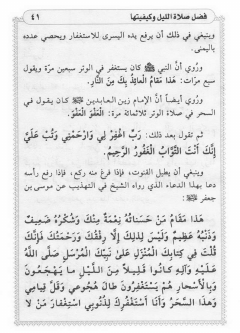 فضل صلاة الليل وكيفيتها
٤١
وينبغي في ذلك أن يرفع يده اليسرى للاستغفار ويحصي عدده
باليمنى.
وروي أنّ النبي ﷺ كان يستغفر في الوتر سبعين مرّة ويقول
سبع مرّات: هَذَا مَقَامُ الْعَائِذِ بِكَ مِنَ النَّارِ.
وروي أيضاً أنّ الإمام زين العابدين كان يقول في
السحر في صلاة الوتر ثلاثمائة مرّة: الْعَفْوَ، الْعَفْوَ.
ثم تقول بعد ذلك: رَبِّ اغْفِرْ لِي وَارْحَمْنِي وَتُبْ عَلَيَّ
إِنَّكَ أَنْتَ التَّوَّابُ الْغَفُورُ الرَّحِيمُ.
وينبغي أن يطيل القنوت، فإذا فرغ منه ركع، فإذا رفع رأسه
دعا بهذا الدعاء الذي رواه الشيخ في التهذيب عن موسى بن
جعفر:
هَذَا مَقَامُ مَنْ حَسَنَاتُهُ نِعْمَةٌ مِنْكَ وَشُكْرُهُ ضَعِيفٌ
وَذَنْبُهُ عَظِيمٌ وَلَيْسَ لِذَلِكَ إِلَّا رِفْقُكَ وَرَحْمَتُكَ فَإِنَّكَ
قُلْتَ فِي كِتَابِكَ الْمُنْزَلِ عَلَى نَبِيِّكَ الْمُرْسَلِ صَلَّى اللهُ
عَلَيْهِ وَآلِهِ كَانُوا قَلِيلاً مِنَ اللَّيْلِ مَا يَهْجَعُونَ
وَبِالْأَسْحَارِ هُمْ يَسْتَغْفِرُونَ طَالَ هُجُوعِي وَقَلَّ قِيَامِي
وَهَذَا السَّحَرُ وَأَنَا أَسْتَغْفِرُكَ لِذُنُوبِي اسْتِغْفَارَ مَنْ لَا